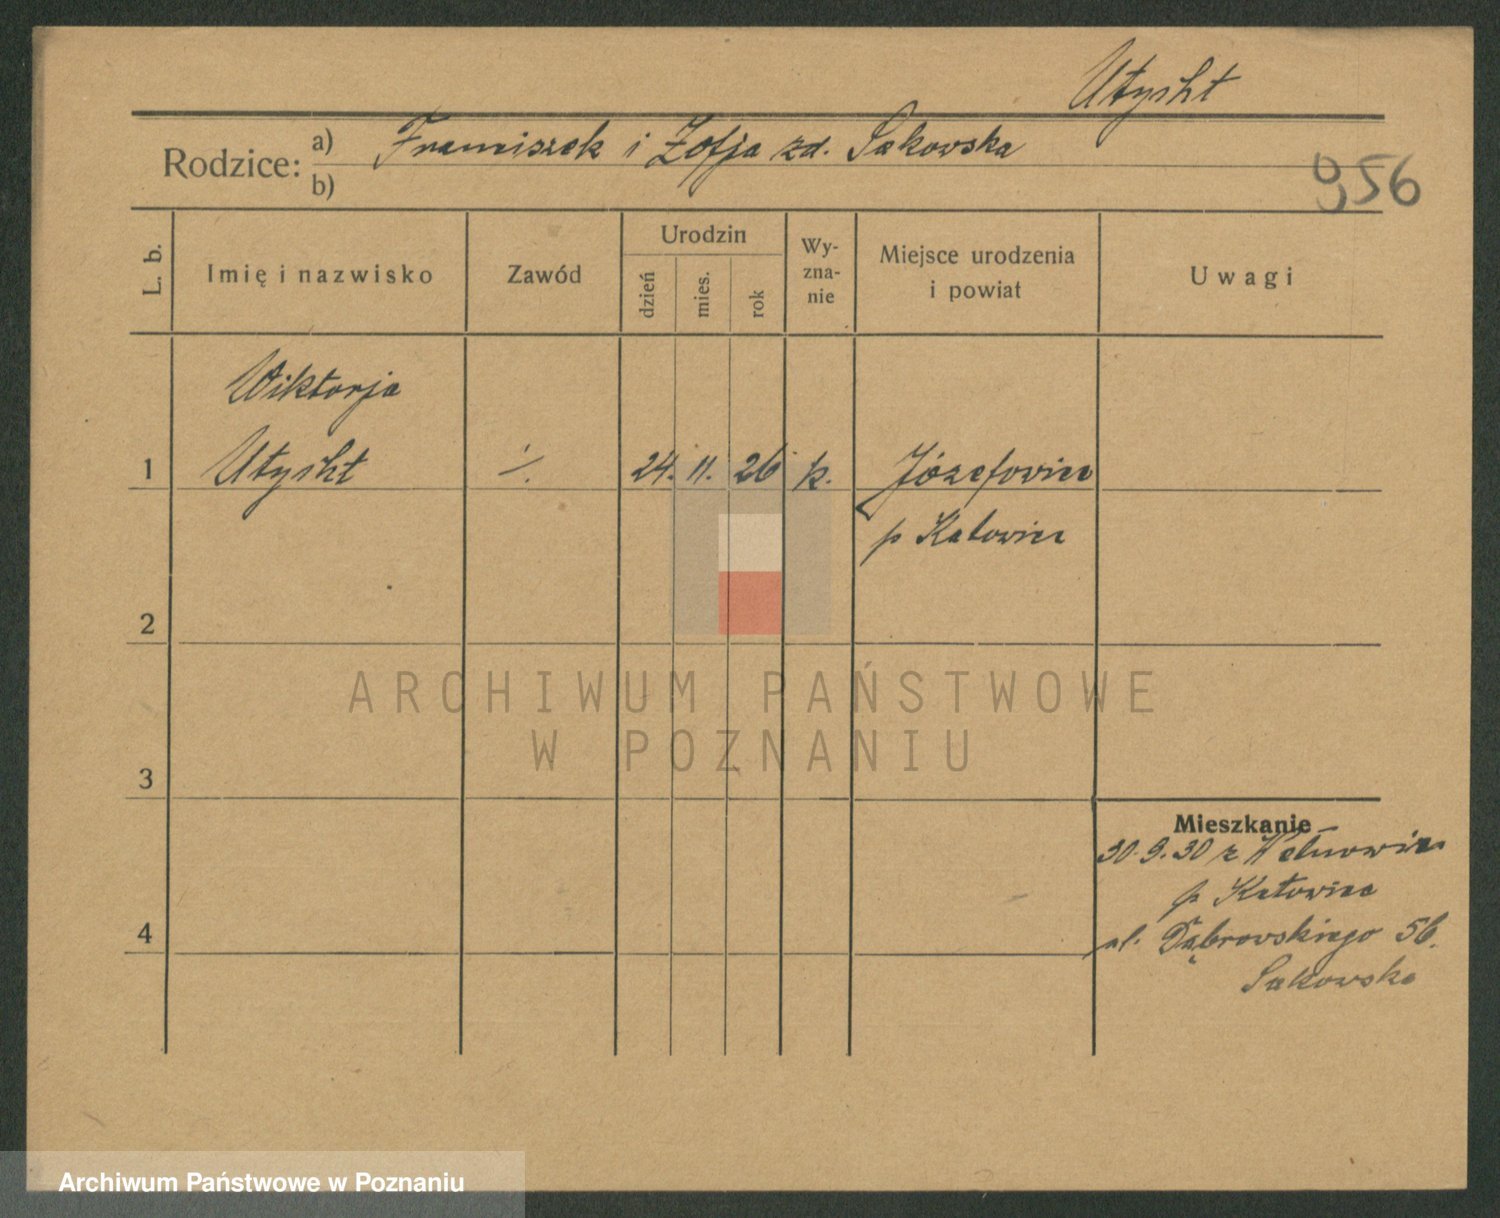 Utysht
Rodzice: a) Franciszek i Zofja zd. Sakowska
b)
956
L. b.
Imię i nazwisko
Zawód
Urodzin
dzień
mies.
rok
Wy-
zna-
nie
Miejsce urodzenia
i powiat
Uwagi
Wiktorja
1 Utysht ·/. 24. 11. 26 k. Józefowice
p Katowice
2
ARCHIWUM PAŃSTWOWE
W POZNANIU
3
Mieszkanie
30.9.30 z
p Katowice
4
ul. Dąbrowskiego 56.
Sakowska
Archiwum Państwowe w Poznaniu